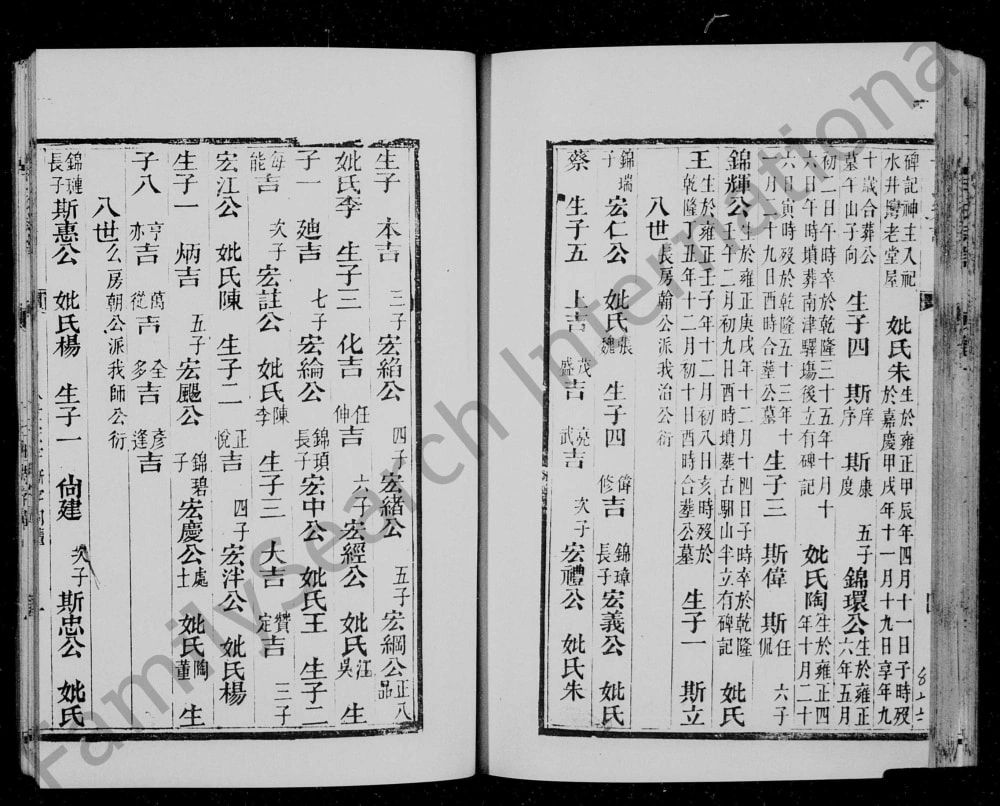 碑記神主入祀水井灣老堂屋 妣氏朱生於雍正甲辰年四月十一日子時歿於嘉慶甲戌年十一月十九日享年九
十歲合葬公墓午山子向 生子四 斯庠 斯序 斯康 斯度 五子錦環公生於雍正六年五月
初二日午時卒於乾隆三十五年十月十六日午時墳葬南津驛塲後立有碑記 妣氏陶生於雍正四年十月二十
六日寅時歿於乾隆五十三年十一月二十九日酉時合葬公墓 生子三 斯偉 斯任 斯侃 六子
錦輝公生於雍正庚戌年十二月十四日子時卒於乾隆壬午二月初九日酉時墳葬古駟山半立有碑記 妣氏
王生於雍正壬子年十二月初八日亥時歿於乾隆丁丑年十二月初十日酉時合葬公墓 生子一 斯立
八世長房翰公派我治公衍
錦瑞子 宏仁公 妣氏張魏 生子四 偉修吉 錦璋長子宏義公 妣氏
蔡 生子五 上吉 茂盛吉 亮武吉 次子 宏禮公 妣氏朱
生子 本吉 三子 宏縚公 四子 宏緒公 五子 宏綱公正八品
妣氏李 生子三 化吉 任伸吉 六子 宏經公 妣氏江吳 生
子一 廸吉 七子 宏綸公 錦瑣長子宏中公 妣氏王 生子二
每能吉 次子 宏註公 妣氏陳李 生子三 大吉 贊定吉 三子
宏江公 妣氏陳 生子二 正悅吉 四子 宏泮公 妣氏楊
生子一 炳吉 五子 宏颺公 錦碧子 宏慶公處士 妣氏陶董 生
子八 亨亦吉 萬從吉 全多吉 彥逢吉
八世么房朝公派我師公衍
錦璉長子斯惠公 妣氏楊 生子一 尙建 次子 斯忠公 妣氏
FamilySearch International